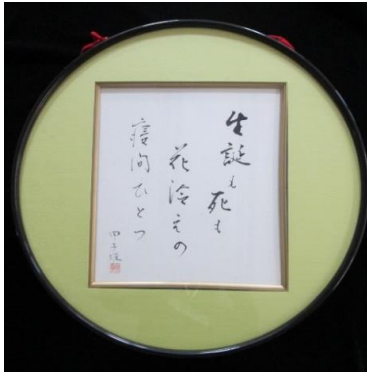 生誕も死も
花冷えの
寝間ひとつ